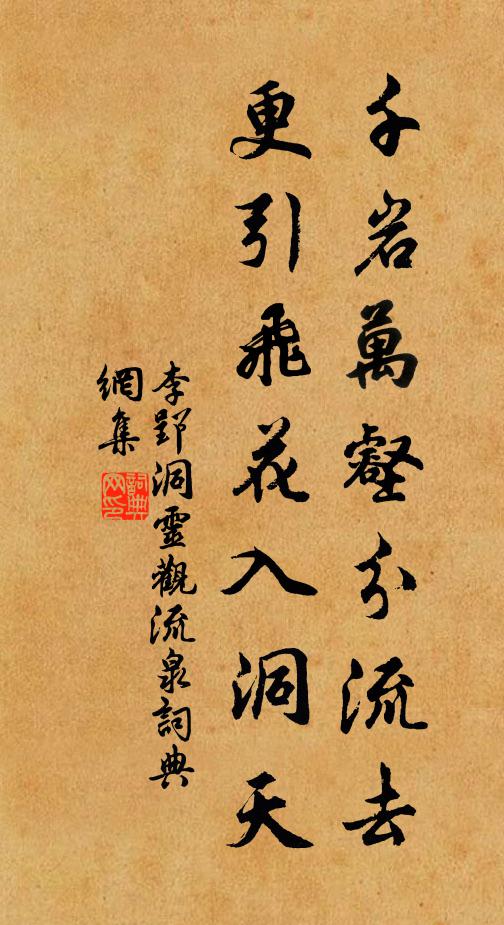 千岩萬壑分流去
更引飛花入洞天
李郢洞靈觀流泉詞典
網集
詞典網印